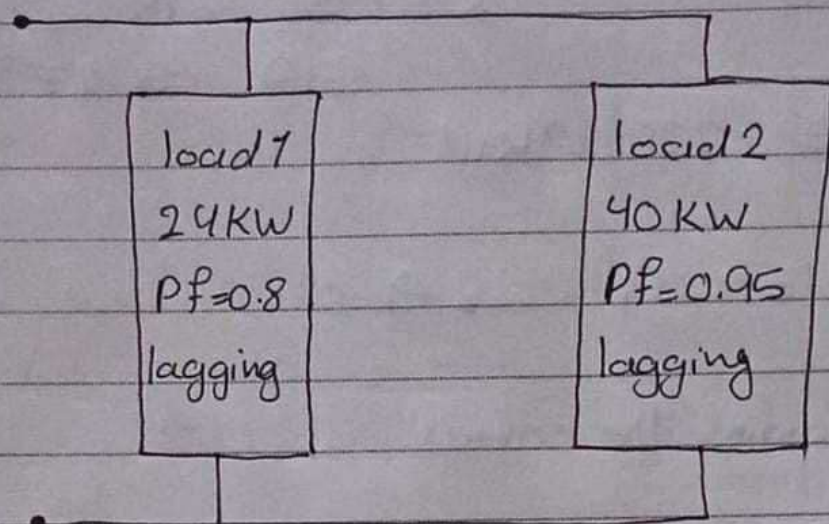 load 1
24KW
Pf=0.8
lagging
load 2
40KW
Pf=0.95
lagging